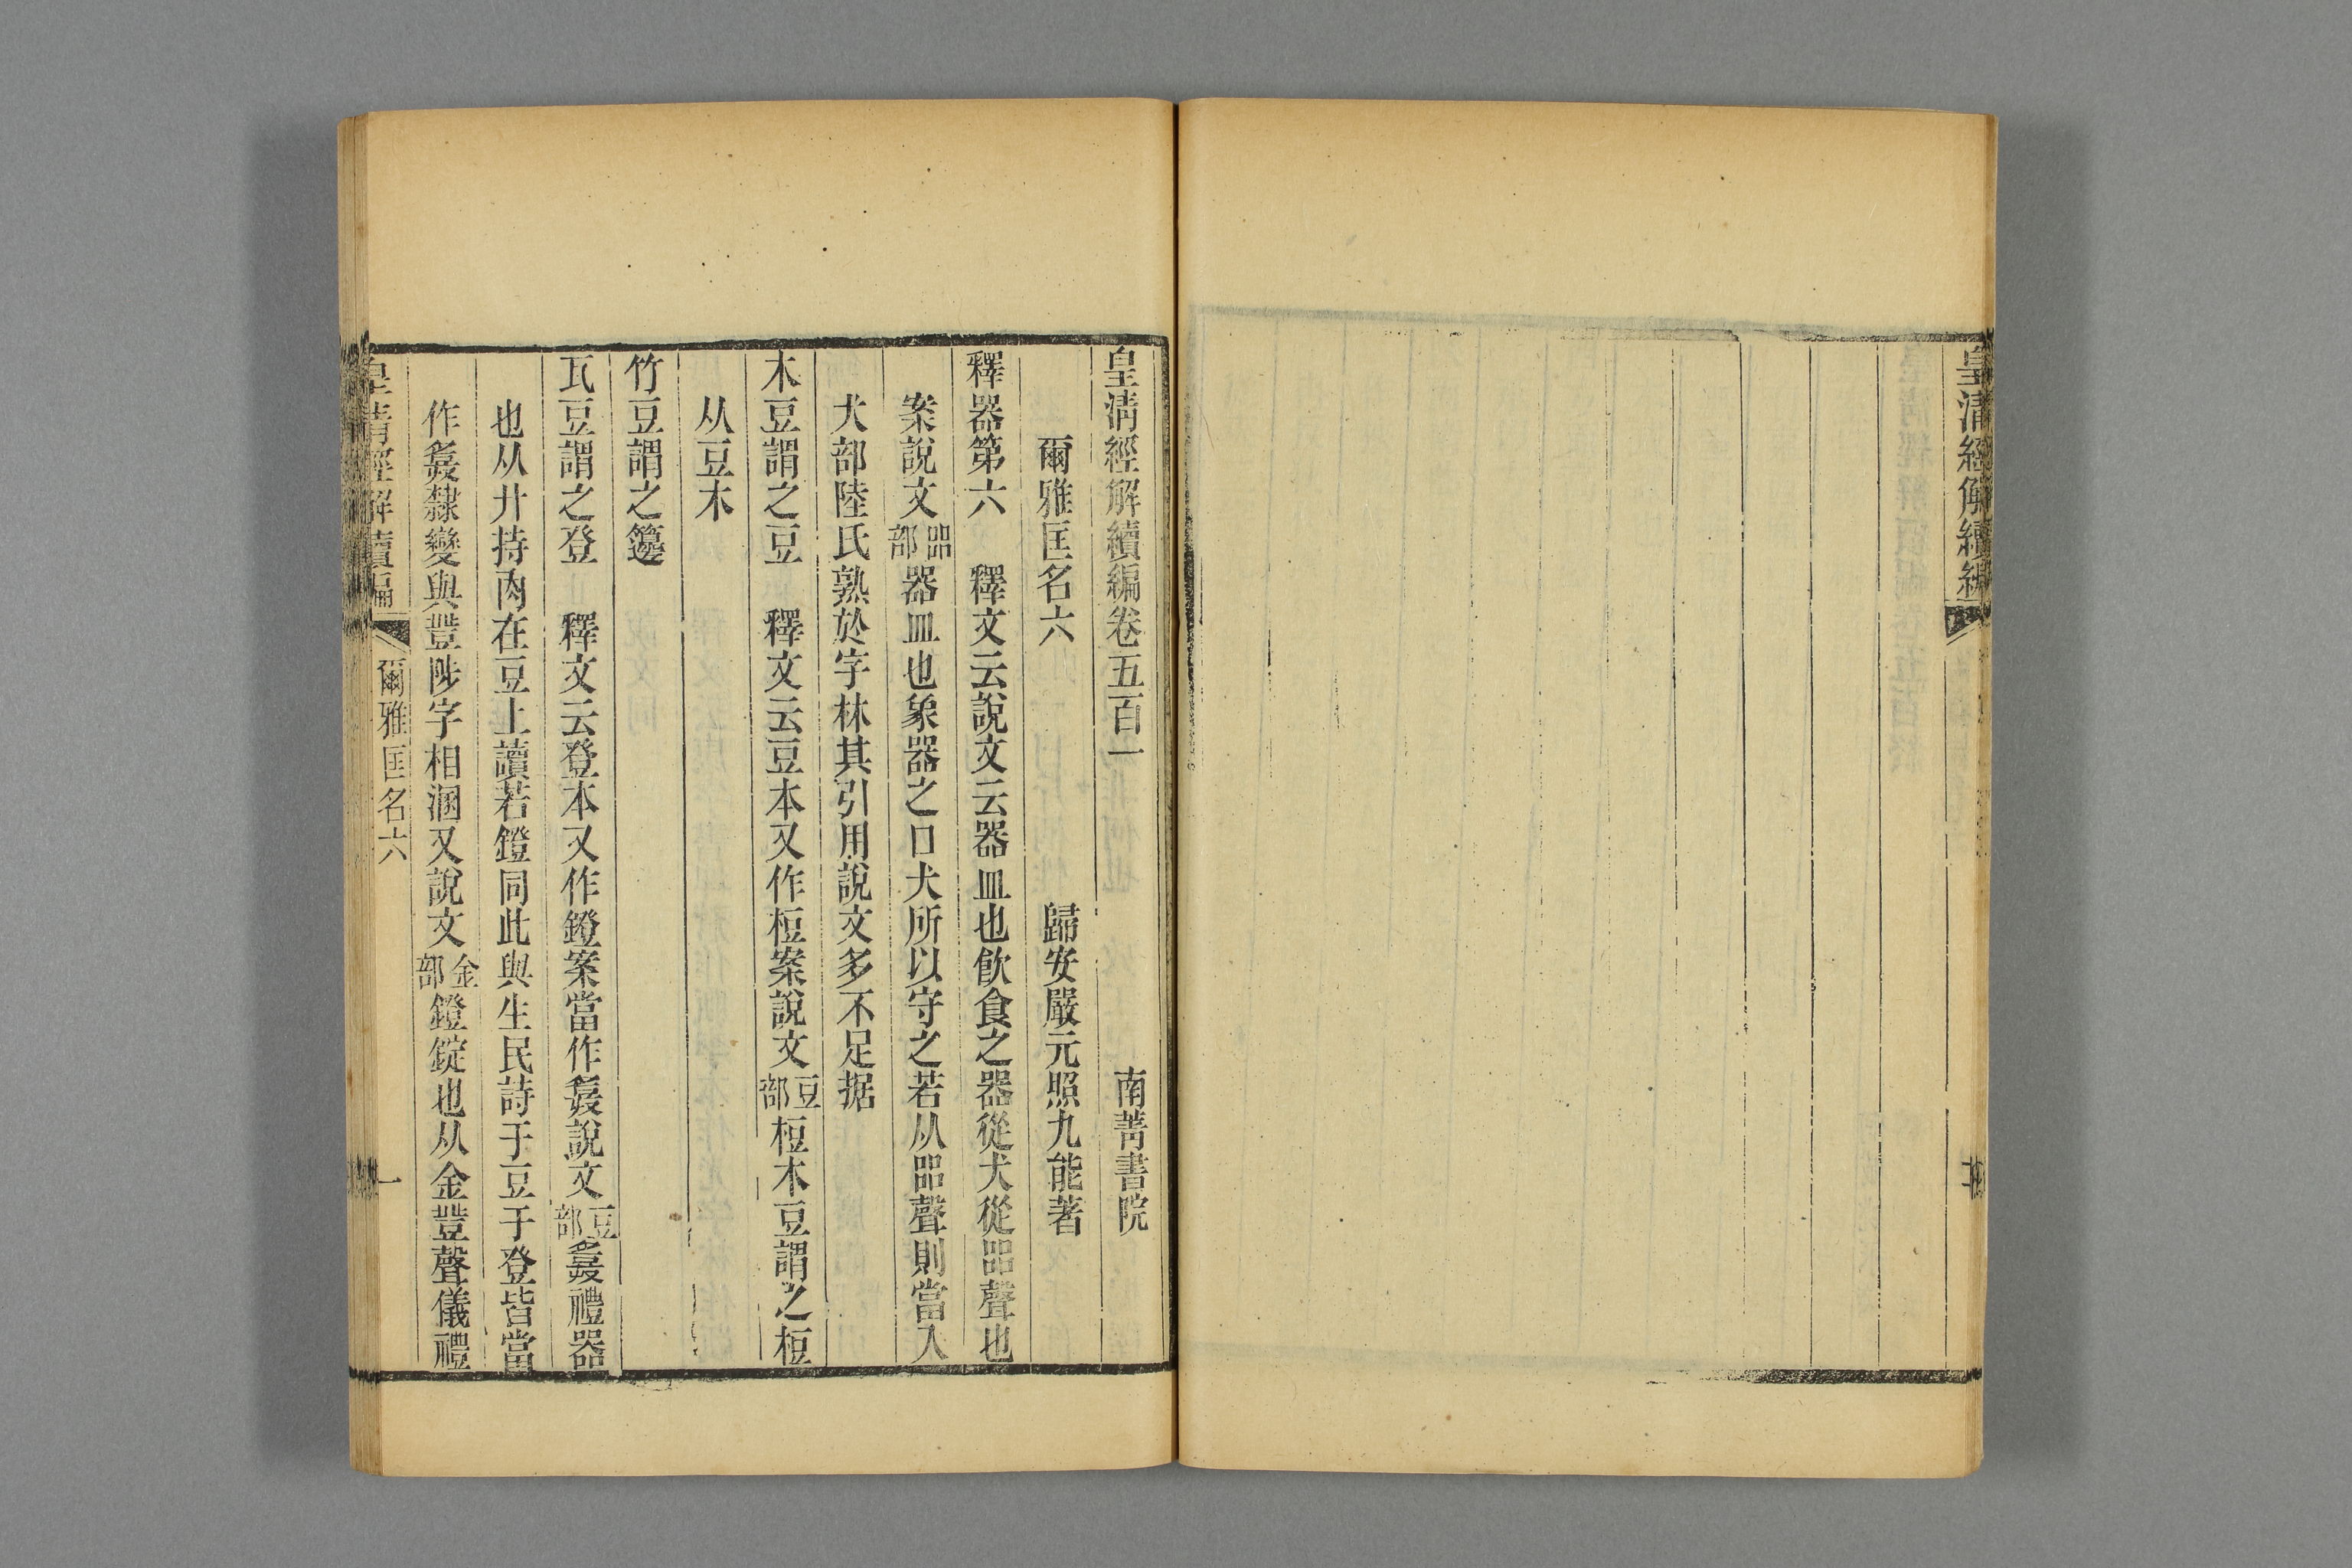 皇清經解續編
皇清經解續編卷五百一　南菁書院
爾雅匡名六　歸安嚴元照九能著
釋器第六　釋文云說文云器皿也飲食之器從犬從㗊聲也
案說文㗊部器皿也象器之口犬所以守之若从㗊聲則當入
犬部陸氏熟於字林其引用說文多不足据
木豆謂之豆　釋文云豆本又作梪案說文豆部梪木豆謂之梪
从豆木
竹豆謂之籩
瓦豆謂之登　釋文云登本又作鐙案當作䔲說文豆部䔲禮器
也从廾持肉在豆上讀若鐙同此與生民詩于豆于登皆當
作䔲隸變與豋陟字相溷又說文金部鐙錠也从金豋聲儀禮
皇清經解續編　爾雅匡名六　一